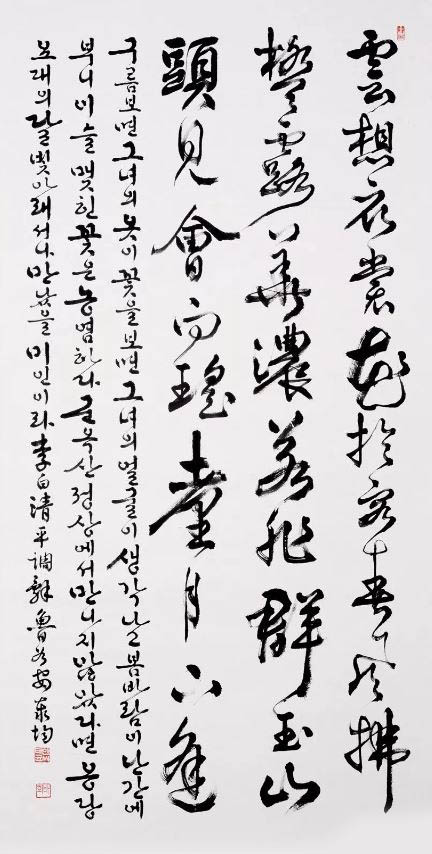 雲想衣裳花想容春風拂
檻露華濃若非群玉山
頭見會向瑤臺月下逢
구름보면 그녀의 옷이 꽃을보면 그녀의 얼굴이 봄바람이 난간에
부니 이슬 맺힌 꽃은 농염하다 군옥산 정상에서 만나지 않았다면 응당
요대의 달빛아래서나 만났을 미인이라 李白清平調辭